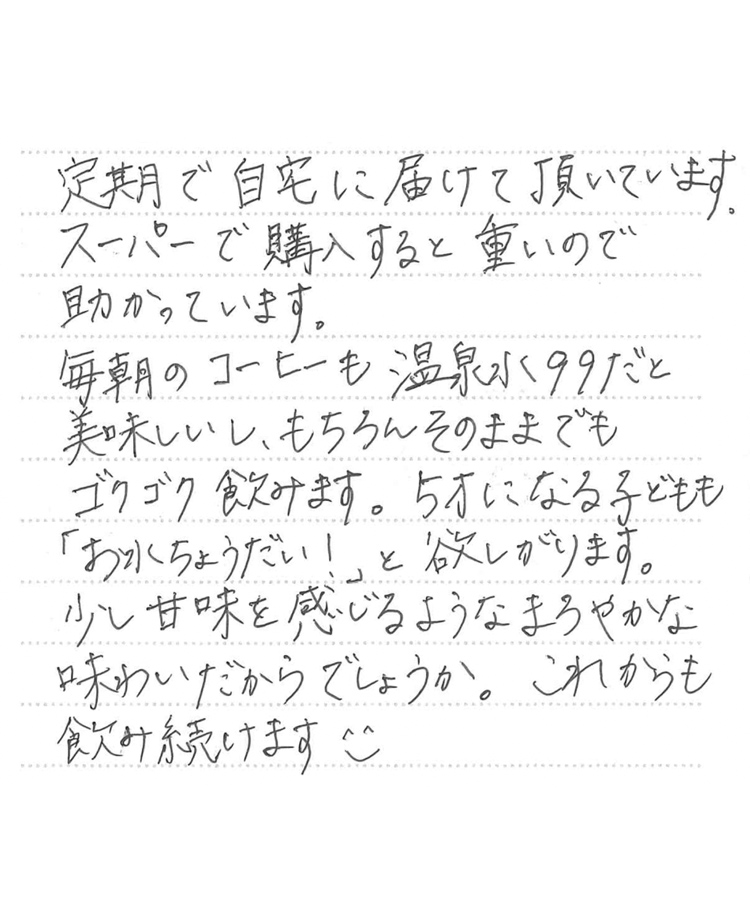 定期で自宅に届けて頂いています。
スーパーで購入すると重いので
助かっています。
毎朝のコーヒーも温泉水99だと
美味しいし、もちろんそのままでも
ゴクゴク飲みます。5才になる子どもも
「お水ちょうだい！」と欲しがります。
少し甘味を感じるようなまろやかな
味わいだからでしょうか。これからも
飲み続けます ^^